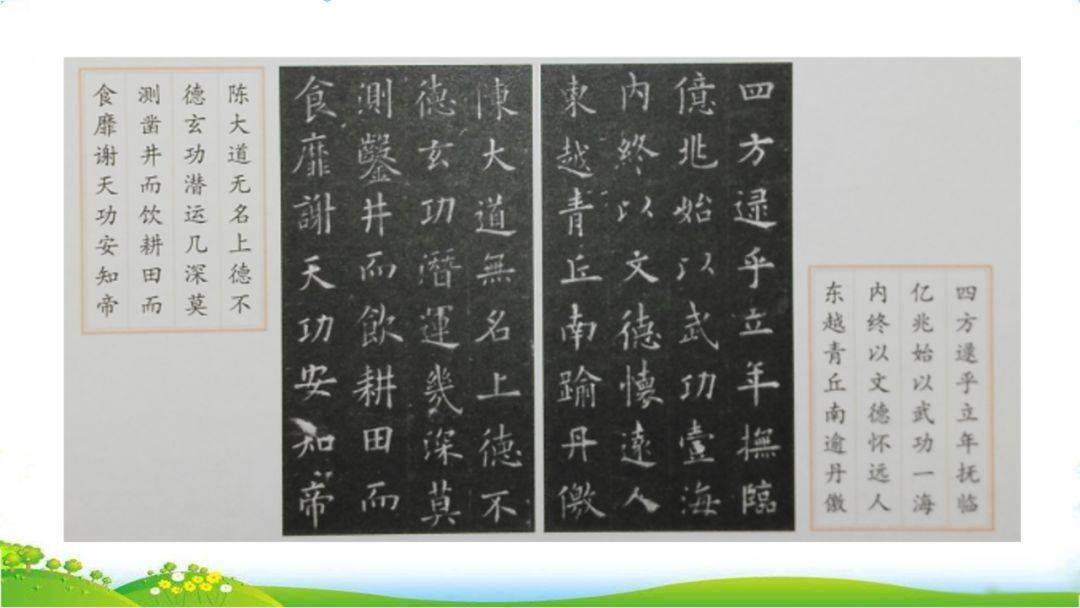 四方逯乎立年抚临
亿兆始以武功一海
内终以文德怀远人
东越青丘南逾丹徼
四方逯乎立年撫臨
億兆始以武功壹海
内終以文德懷遠人
東越青丘南踰丹徼
陳大道無名上德不
德玄功潛運幾深莫
測鑿井而飲耕田而
食靡謝天功安知帝
陈大道无名上德不
德玄功潜运几深莫
测凿井而饮耕田而
食靡谢天功安知帝